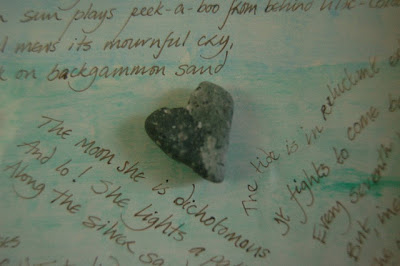 sun plays peek-a-boo from behind
mews its mournful cry,
on backgammon sand
The Moon she is dichotomous
And lo! She lights a
Along the silver
The tide is in reluctant
It fights to come
Every seventh
But, me